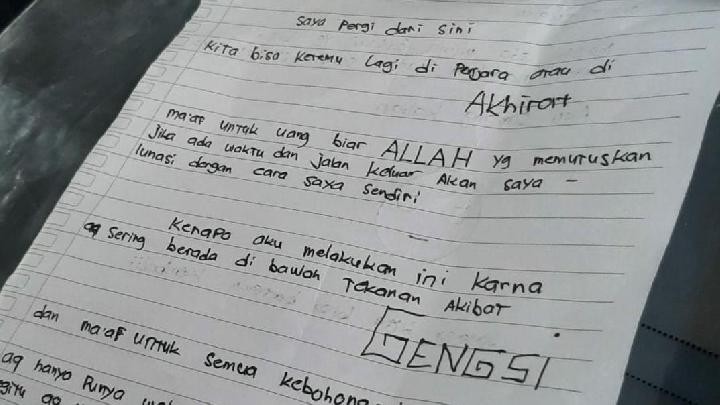 saya pergi dari sini
Kita bisa Ketemu Lagi di Penjara atau di
Akhirat
ma'af untuk uang biar ALLAH yg memutuskan
Jika ada waktu dan jalan keluar Akan saya -
lunasi dengan cara saya sendiri
Kenapa aku melakukan ini Karna
aq sering berada di bawah Tekanan Akibat
GENGSI
dan ma'af untuk semua kebohong
aq hanya Punya